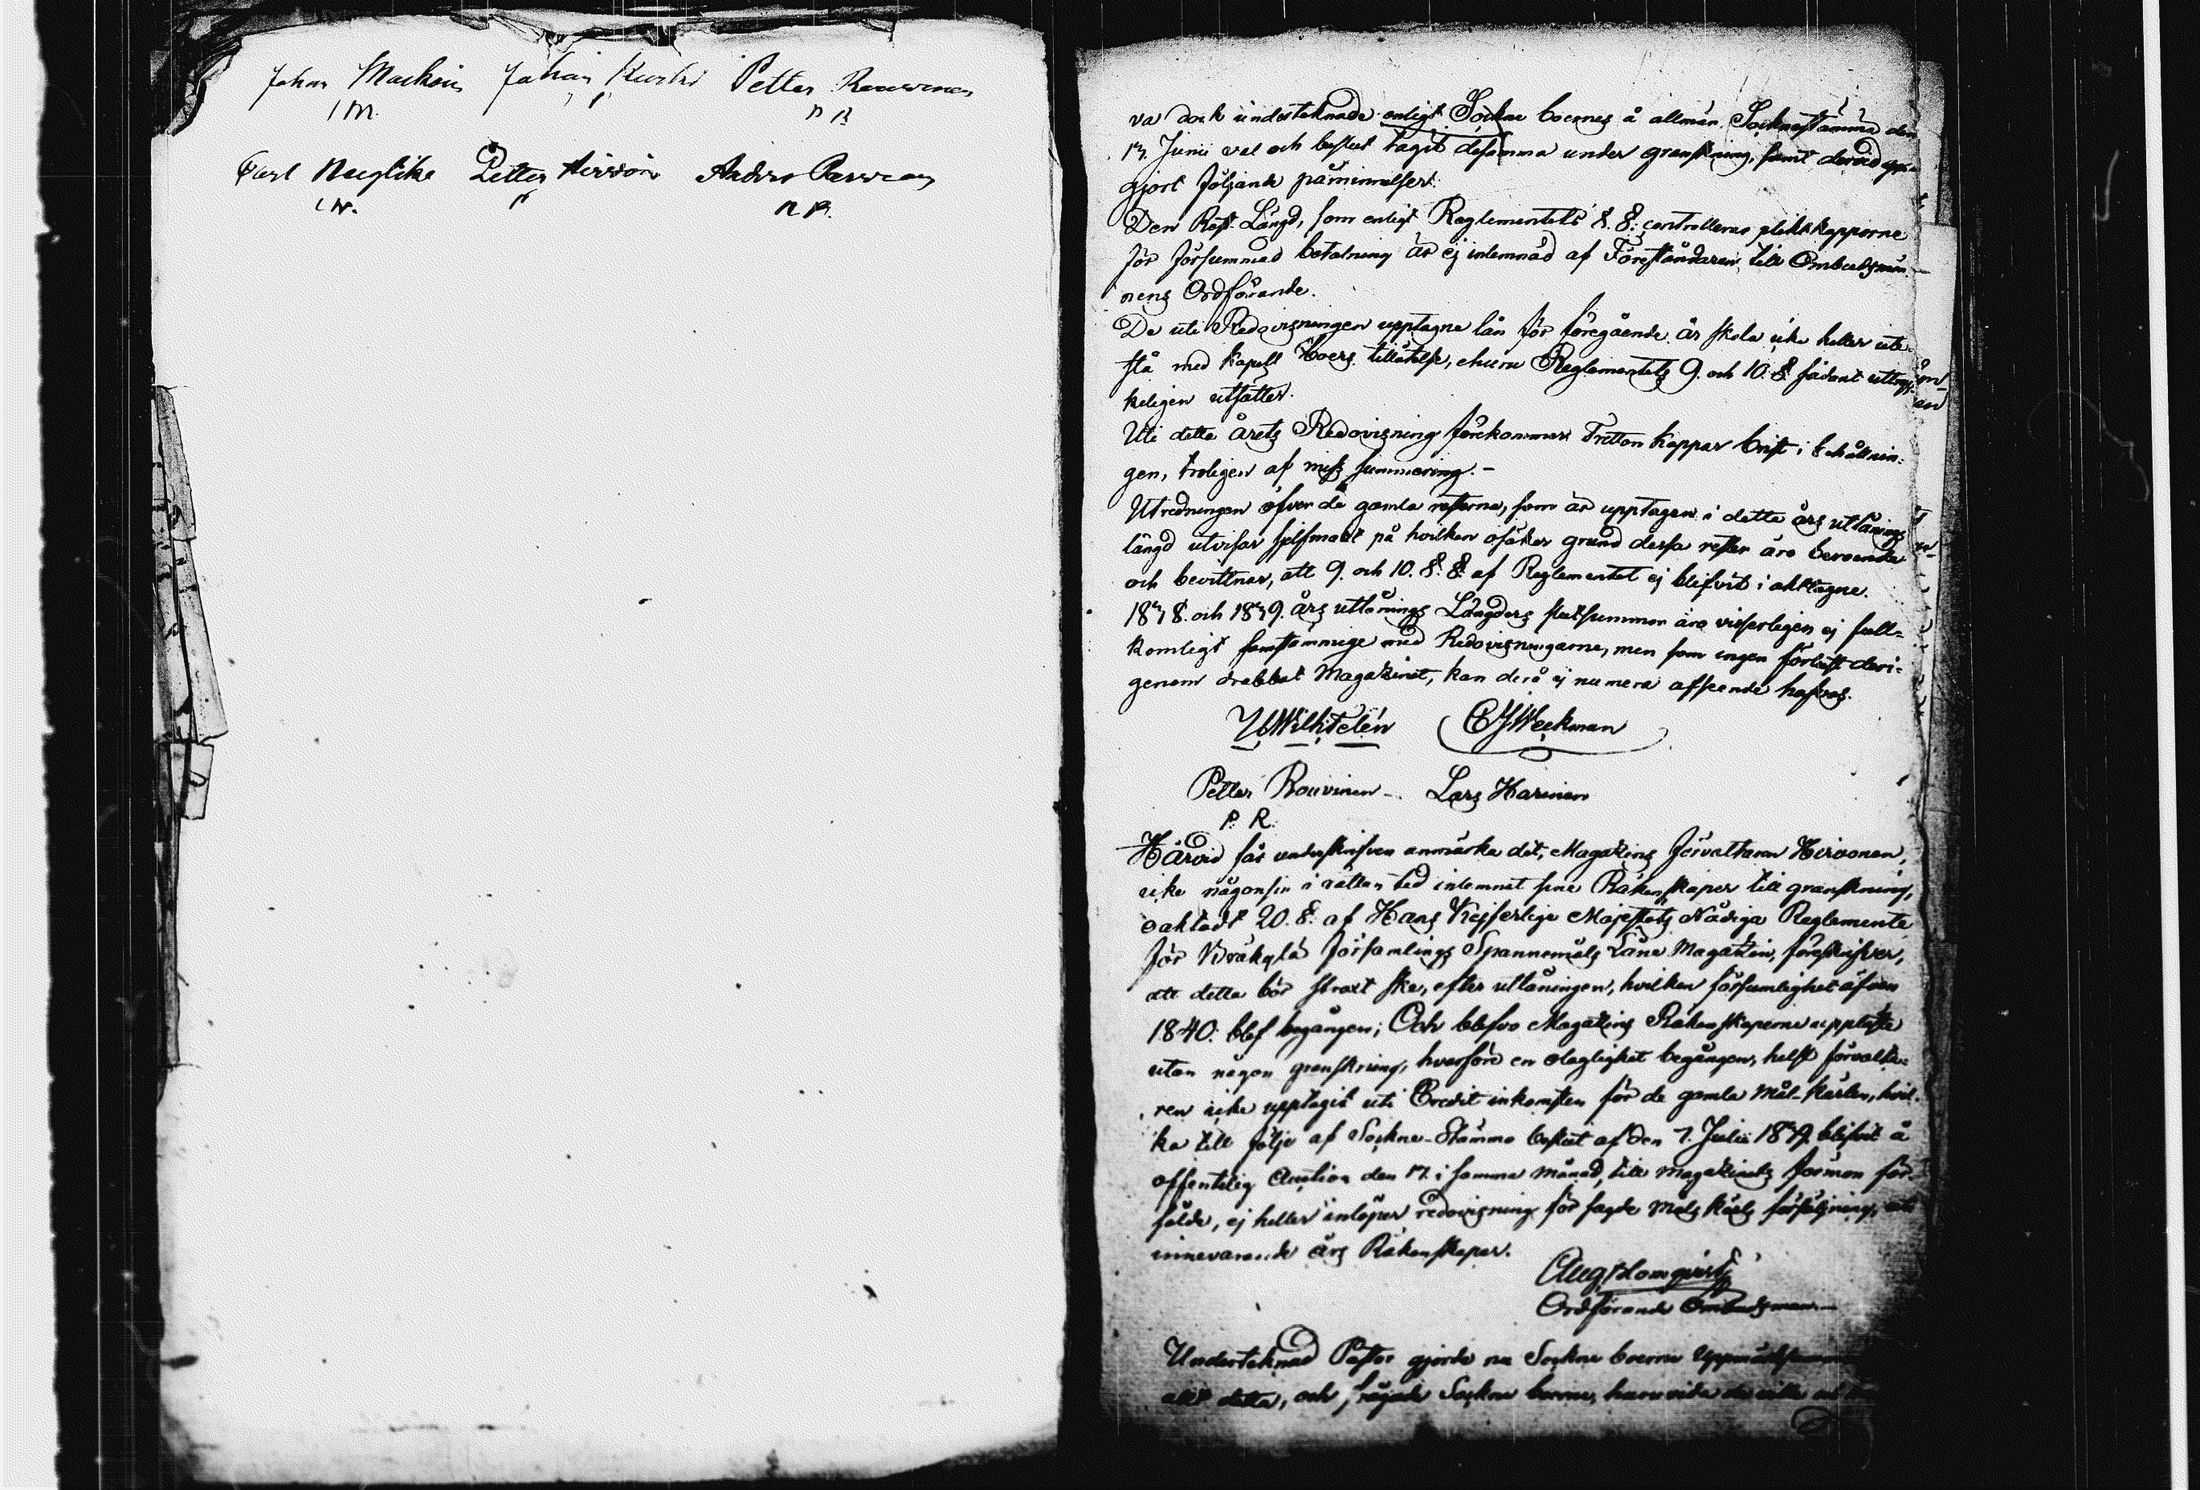 Johan Johan Petter
I M. P R
Carl Petter Hirvoin Anders
P P.
va dock undertecknade enligt Sockne boernes å allmän Socknestämma den
17. Junii val och beslut tagit desamma under granskning, samt dervid
gjort följande påminnelser.
Den Rest-Längd, som enligt Reglementets §. 8. controlleras plikt kapporne
för försummad betalning är ej inlemnad af Föreståndaren till Ombudsmän-
nens Ordförande.
De uti Redovisningen upptagne lån för föregående år skola icke heller ute-
stå med Kapell boers tillåtelse, ehuru Reglementets 9. och 10. §. sådant uttryc-
keligen utsätter.
Uti detta årets Redovisning förekommer Tretton kappar brist i behållnin-
gen, troligen af miss summering. -
Utredningen öfver de gamla resterna, som är upptagen i detta års utlånings
längd utvisar sjelfmant på hvilken osäker grund dessa rester äro beroende
och bevittnar, att 9. och 10. §. §. af Reglementet ej blifvit i akttagne.
1838. och 1839. års utlånings Längders slutsummor äro visserligen ej full-
komligt samstämmige med Redovisningarne, men som ingen förlust deri-
genom drabbat Magazinet, kan derå ej numera afseende hafvas.
CJWeckman
Petter Rouvinen - Lars Harinen
P. R.
Härvid får underskrifven anmärka det, Magazins Förvaltaren Hirvonen,
icke någonsin i rättan tid inlemnat sine Räkenskaper till granskning,
oaktadt 20. §. af Hans Kejserlige Majestäts Nådiga Reglemente
för Bräkylä Församlings Spannemåls Låne Magazin, föreskrifver,
att detta bör straxt ske, efter utlåningen, hvilken försumlighet äfven
1840. blef begången; Och blefvo Magazins Räkenskaperne upplästa
utan någon granskning, hvarföre en olaglighet begången, helst förvalta-
ren icke upptagit uti Credit inkomsten för de gamla Mål-kärlen, hvil-
ka till följe af Sockne-Stämmo beslut af den 7. Julii 1839. blifvit å
offentelig Auction den 17. i samma Månad, till Magazinets förmon för-
sålde, ej heller inlöper redovisning för sagde Måls kärls försäljning, uti
innevarande års Räkenskaper.
Aug Holmqvist
Ordförande Ombudsman.
Undertecknad Pastor gjorde nu Sockne boerne
allt detta, och frågade Sockne boerne, huruvida de ville